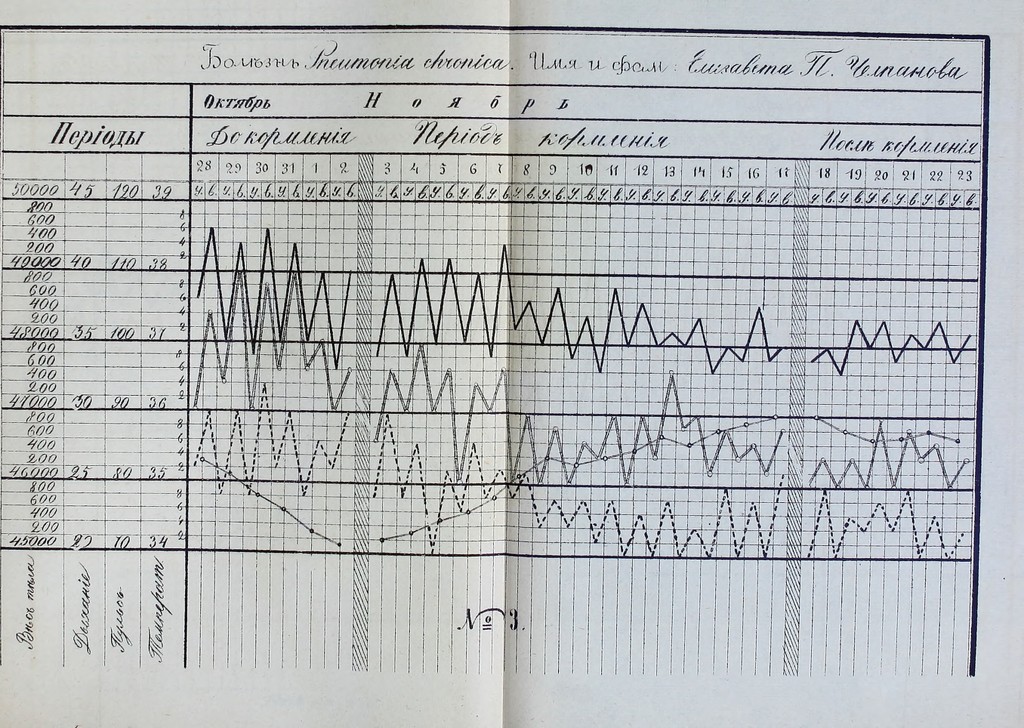 Болѣзнь Pneumonia chronica. Имя и фам: Елизавета П. Челпанова
Октябрь Ноябрь
Періоды До кормленія Періодъ кормленія Послѣ кормленія
28 29 30 31 1 2 3 4 5 6 7 8 9 10 11 12 13 14 15 16 17 18 19 20 21 22 23
50000 45 120 39 у. в. у. в. у. в. у. в. у. в. у. в. у. в. у. в. у. в. у. в. у. в. у. в. у. в. у. в. у. в. у. в. у. в. у. в. у. в. у. в. у. в. у. в. у. в. у. в. у. в. у. в. у. в.
800 8
600 6
400 4
200 2
49000 40 110 38
800 8
600 6
400 4
200 2
48000 35 100 37
800 8
600 6
400 4
200 2
47000 30 90 36
800 8
600 6
400 4
200 2
46000 25 80 35
800 8
600 6
400 4
200 2
45000 20 70 34
Вѣсъ тѣла
Дыханіе
Пульсъ
Температ
№ 3.